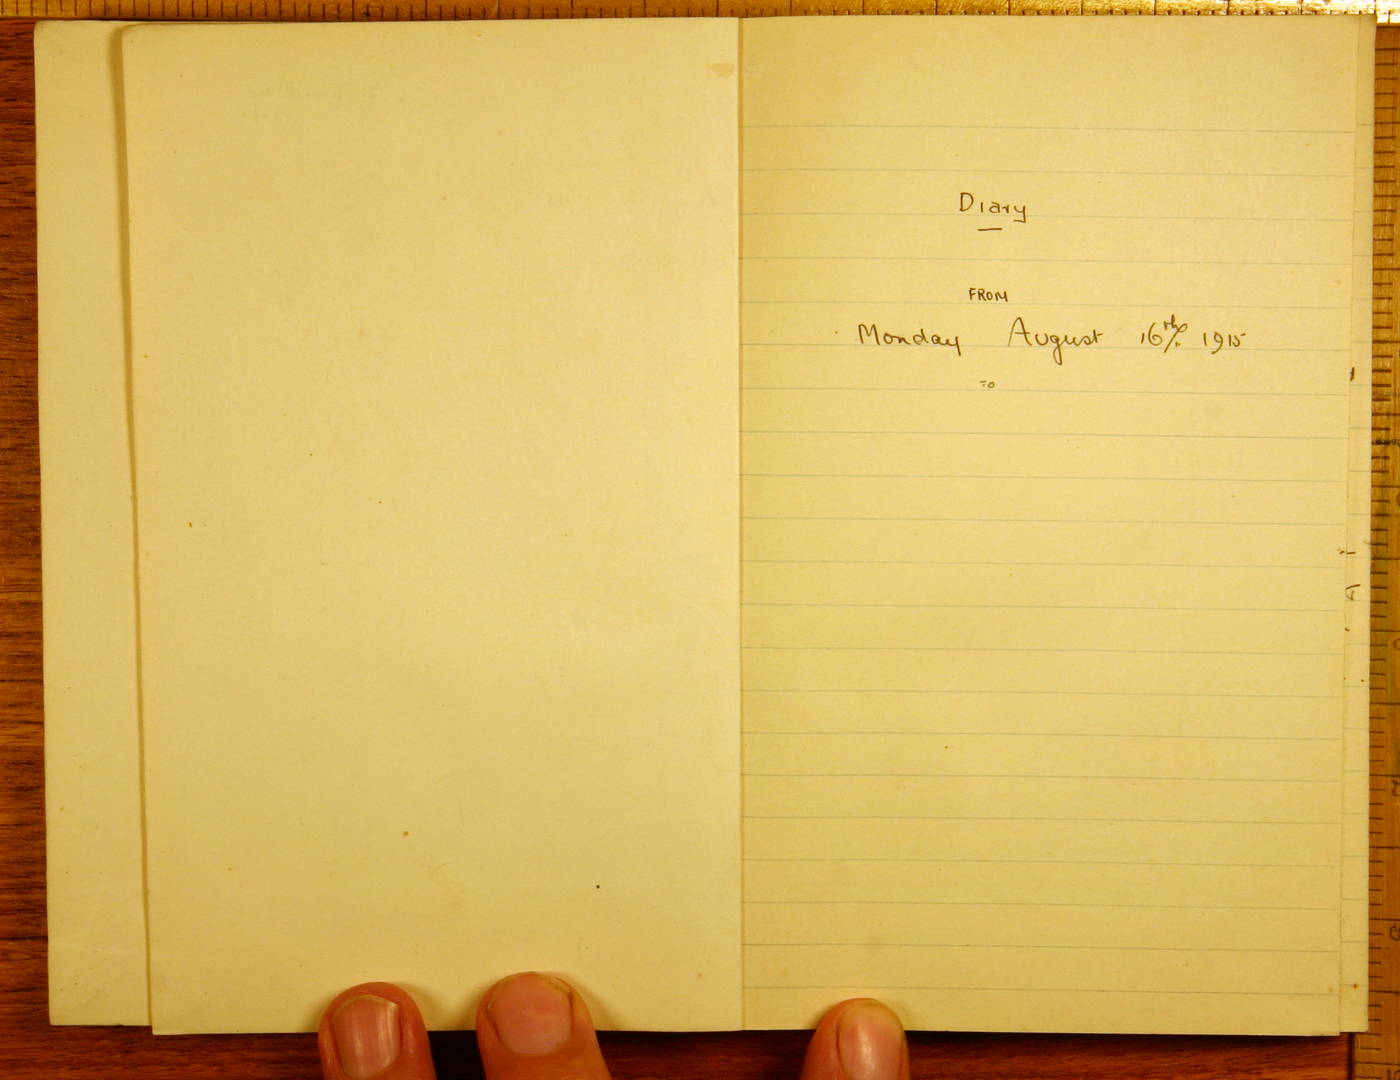 Diary
FROM
Monday August 16th 1915
TO